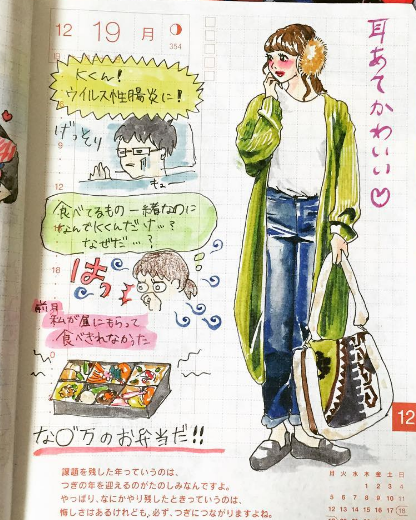 12 19 月
354
Kくん!
ウイルス性腸炎に!
げっそり
9
12
食べてるもの一緒なのに
なんでKくんだけ…?
なぜだ…?
18
はっ
前日
私が昼にもらって
食べきれなかった
な○万のお弁当だ!!
耳あてかわいい♡
12
課題を残した年っていうのは、
つぎの年を迎えるのがたのしみなんですよ。
やっぱり、なにかやり残したときっていうのは、
悔しさはあるけれども、必ず、つぎにつながりますよね。
月 火 水 木 金 土 日
1 2 3 4
5 6 7 8 9 10 11
12 13 14 15 16 17 18
19